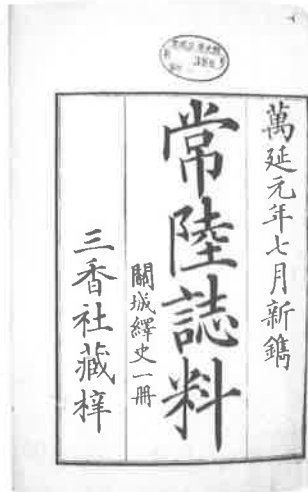 萬延元年七月新鐫
常陸誌料
關城繹史一冊
三香社藏梓